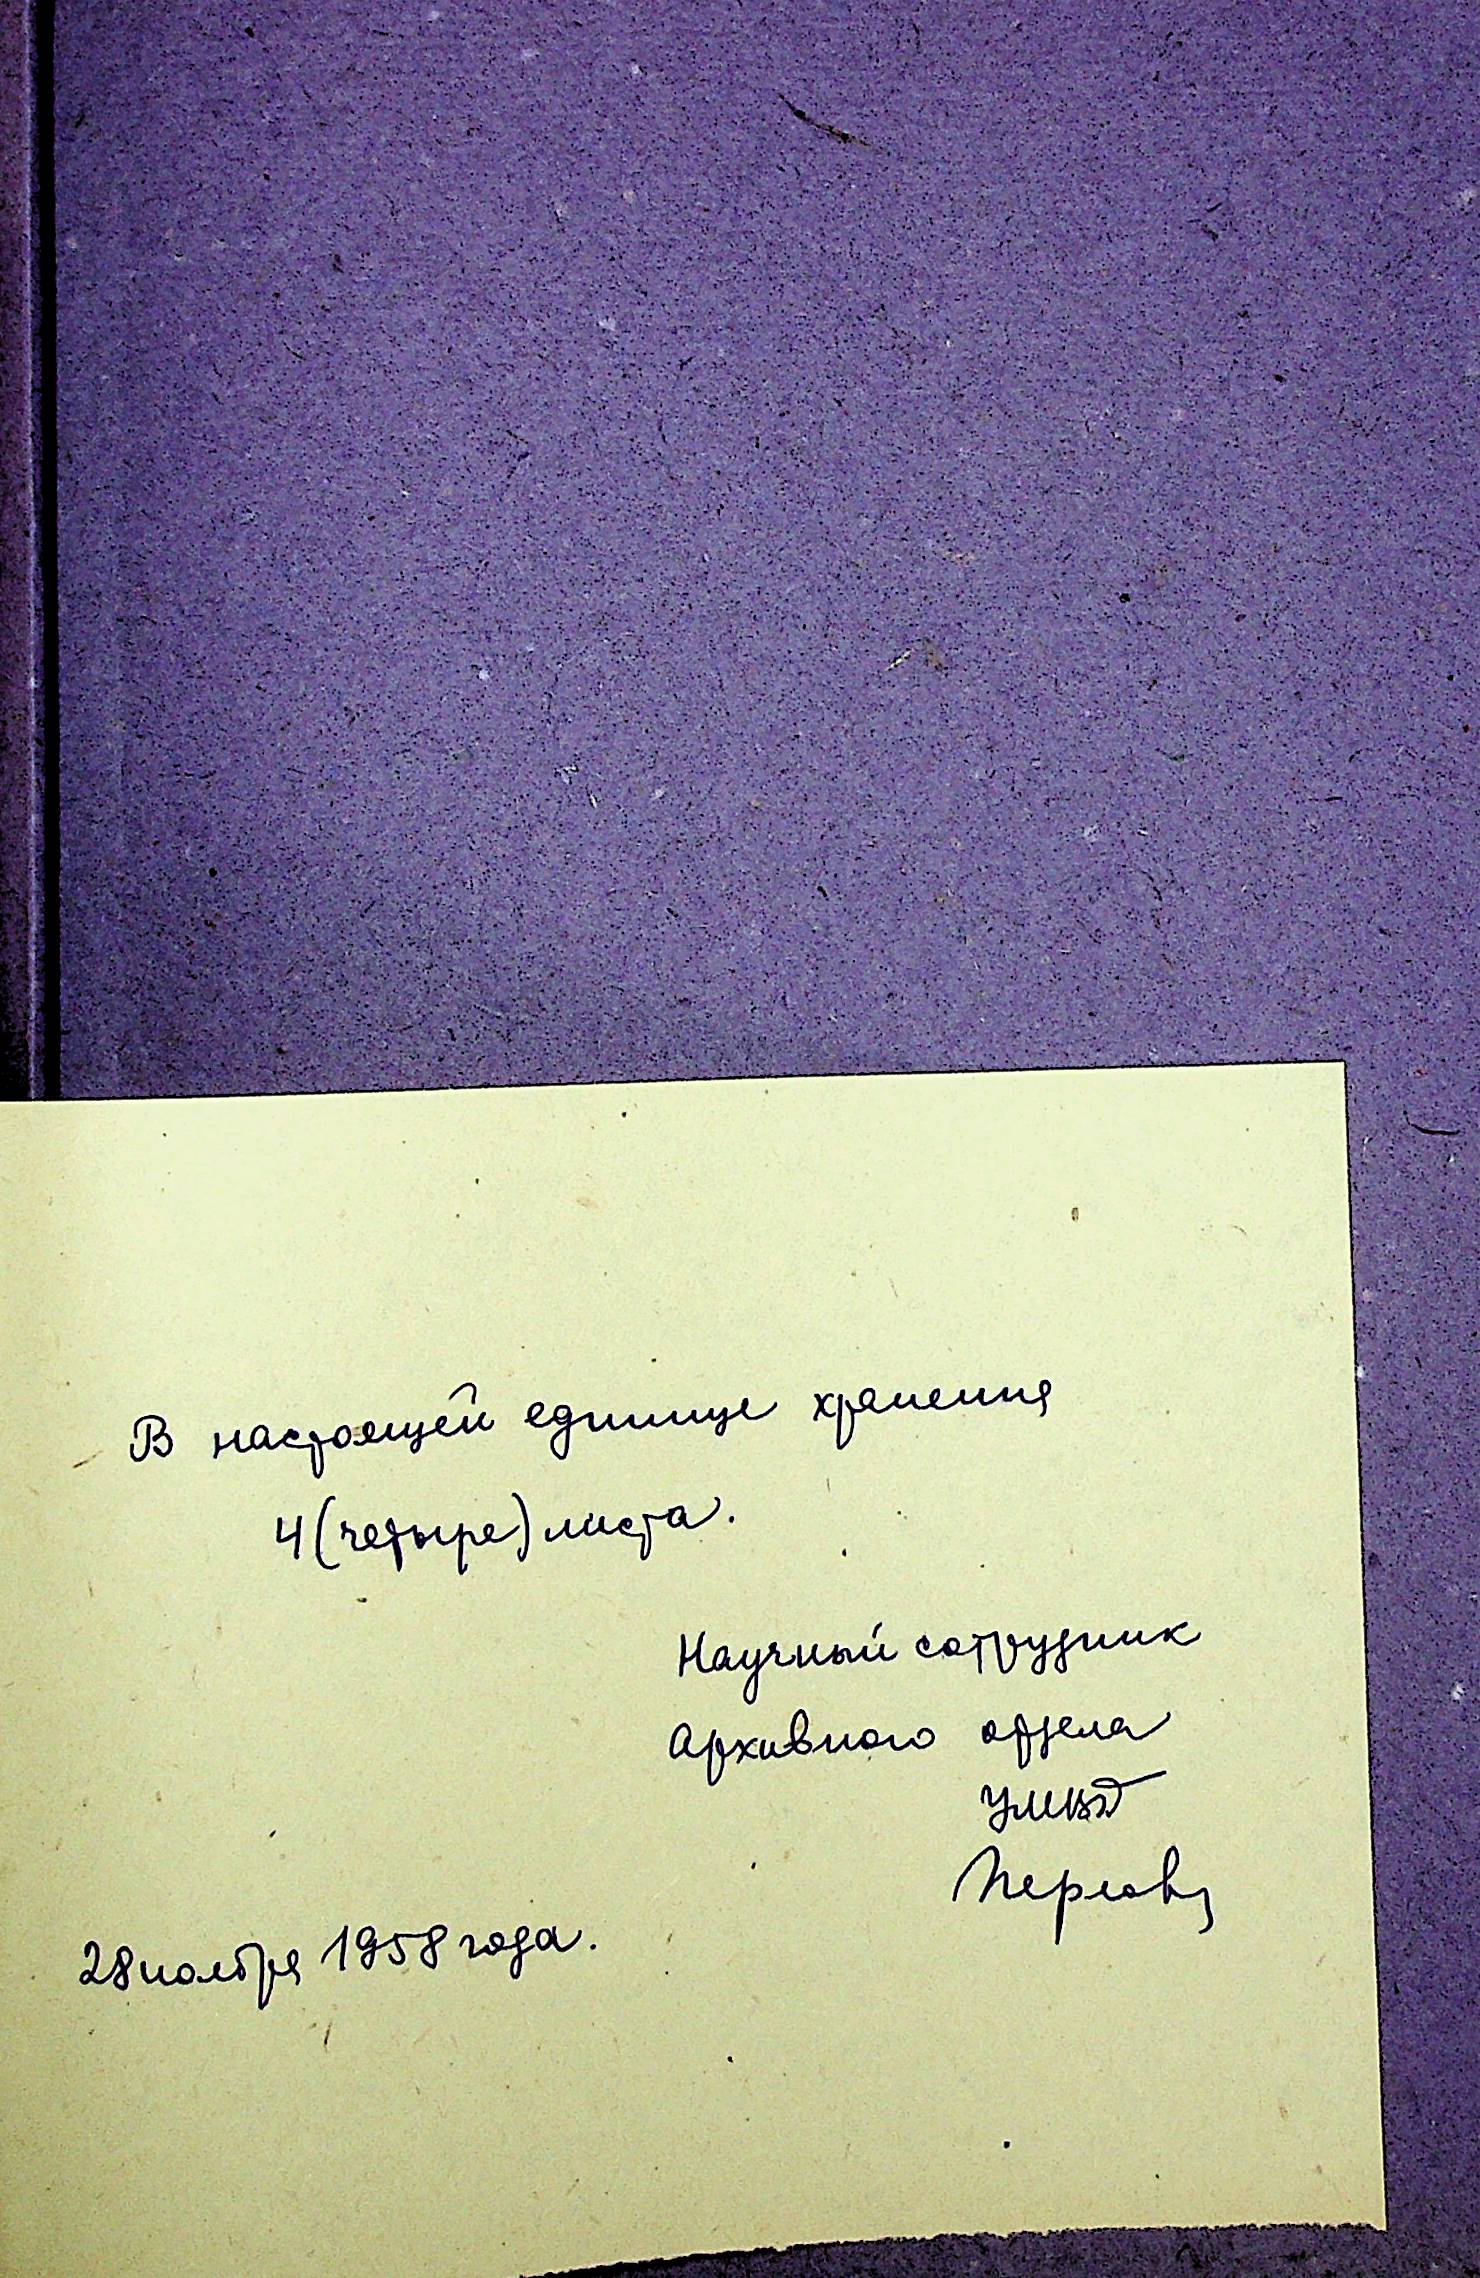 В настоящей единице хранения
4 (четыре) листа.
Научный сотрудник
Архивного отдела
УМВД
28 ноября 1958 года.